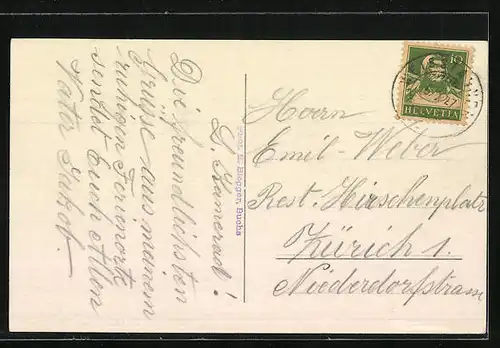 L. Kamerad!
Die freundlichsten
Grüsse aus meinem
ruhigen Ferienorte
sendet Euch allen
Vater Jakob.
Phot. E. Bloggen, Buchs
10
HELVETIA
27
Herrn
Emil Weber
Rest. Hirschenplatz
Zürich 1.
Niederdorfstrasse